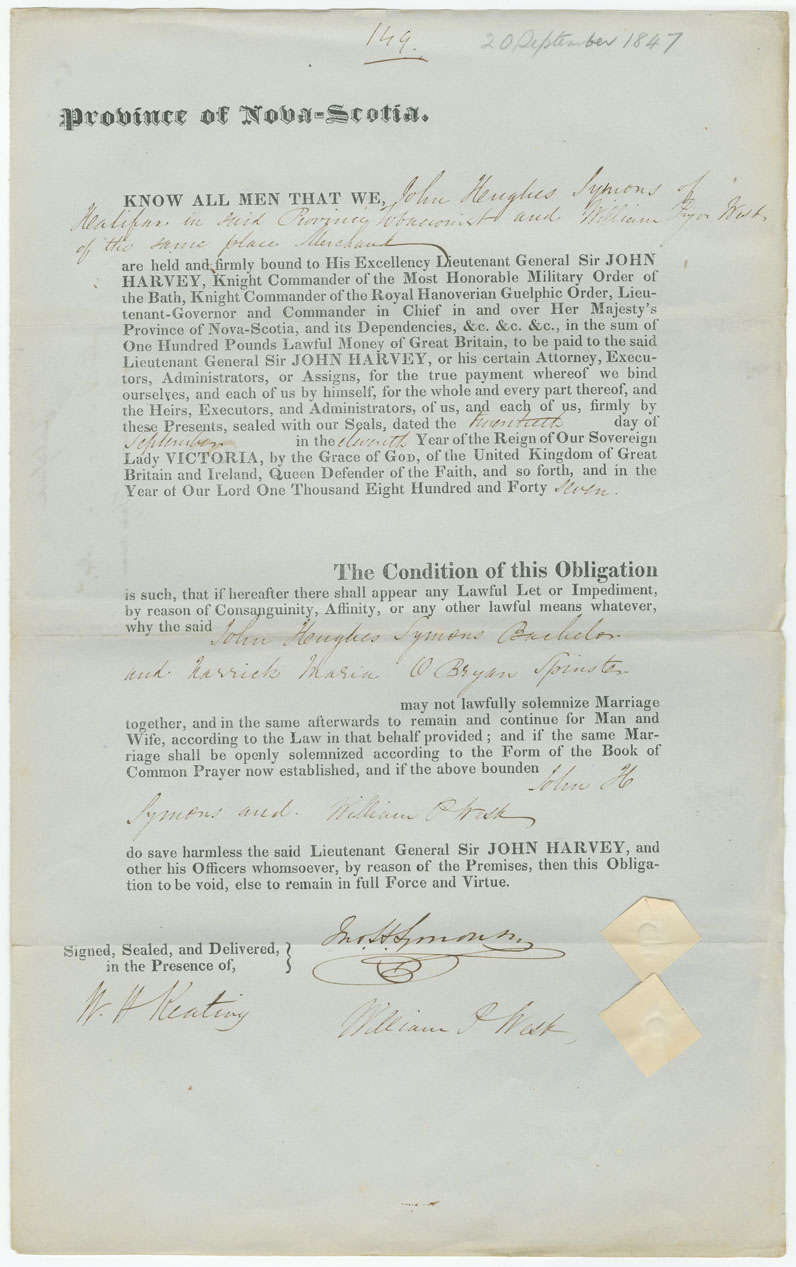 149.
20 September 1847
Province of Nova-Scotia.
KNOW ALL MEN THAT WE, John Hughes Symons of
Halifax in said Province Tobacconist and William Pryor West
of the same place Merchant
are held and firmly bound to His Excellency Lieutenant General Sir JOHN
HARVEY, Knight Commander of the Most Honorable Military Order of
the Bath, Knight Commander of the Royal Hanoverian Guelphic Order, Lieu-
tenant-Governor and Commander in Chief in and over Her Majesty's
Province of Nova-Scotia, and its Dependencies, &c. &c. &c., in the sum of
One Hundred Pounds Lawful Money of Great Britain, to be paid to the said
Lieutenant General Sir JOHN HARVEY, or his certain Attorney, Execu-
tors, Administrators, or Assigns, for the true payment whereof we bind
ourselves, and each of us by himself, for the whole and every part thereof, and
the Heirs, Executors, and Administrators, of us, and each of us, firmly by
these Presents, sealed with our Seals, dated the twentieth day of
September in the eleventh Year of the Reign of Our Sovereign
Lady VICTORIA, by the Grace of GOD, of the United Kingdom of Great
Britain and Ireland, Queen Defender of the Faith, and so forth, and in the
Year of Our Lord One Thousand Eight Hundred and Forty seven.
The Condition of this Obligation
is such, that if hereafter there shall appear any Lawful Let or Impediment,
by reason of Consanguinity, Affinity, or any other lawful means whatever,
why the said John Hughes Symons Bachelor
and Harriek Maria O Bryan Spinster
may not lawfully solemnize Marriage
together, and in the same afterwards to remain and continue for Man and
Wife, according to the Law in that behalf provided; and if the same Mar-
riage shall be openly solemnized according to the Form of the Book of
Common Prayer now established, and if the above bounden John H
Symons and William P West
do save harmless the said Lieutenant General Sir JOHN HARVEY, and
other his Officers whomsoever, by reason of the Premises, then this Obliga-
tion to be void, else to remain in full Force and Virtue.
Signed, Sealed, and Delivered,
in the Presence of,
Jno. H. Symons
W. H Keating
William P West